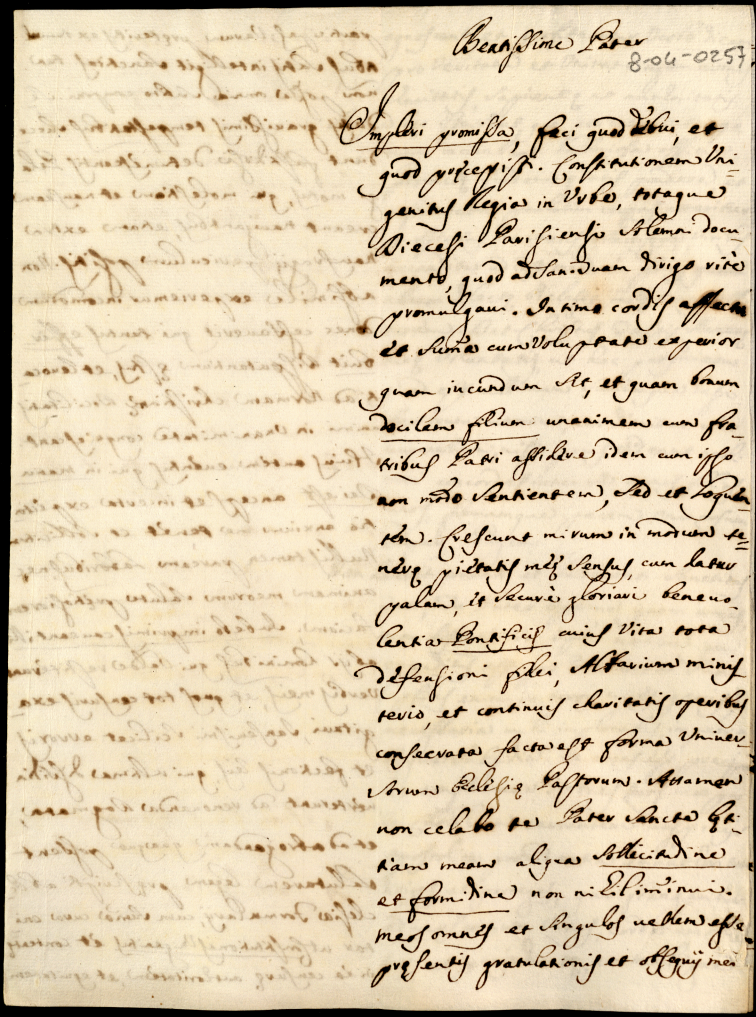 Beatissime Pater
8-04-0257
Impleui promissa, feci quod debui, et
quod præcepisti. Constitutionem Uni-
genitus Regia in Urbe, totaque
Diecesi Parisiensi solemni docu-
mento, quod ad San.tuam dirigo ritè
promulgaui. Intimo cordis affectu
et summa cum voluptate experior
quam iucundum sit, et quam bonum
docilem filium unanimem cum fra-
tribus Patri assidere idem cum ipso
non modo sentientem, sed et loquen-
tem. Crescunt mirum in modum te-
neræ pietatis meæ sensus, cum datur
palam, et securè gloriari beneuo-
lentia Pontificis cuius vita tota
defensioni fidei, Altarium minis-
terio, et continuis charitatis operibus
consecrata facta est forma Univer-
sorum Ecclesiæ Pastorum. Attamen
non celabo te Pater Sancte læti-
tiam meam aliqua sollicitudine
et formidine non nihil iminui.
meos omnes et singulos vellem esse
præsentis gratulationis et obsequij mei